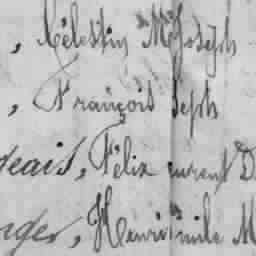 , Célestin M Joseph
, François Jeph
deais, Félix urent D
nger, Henri mile M